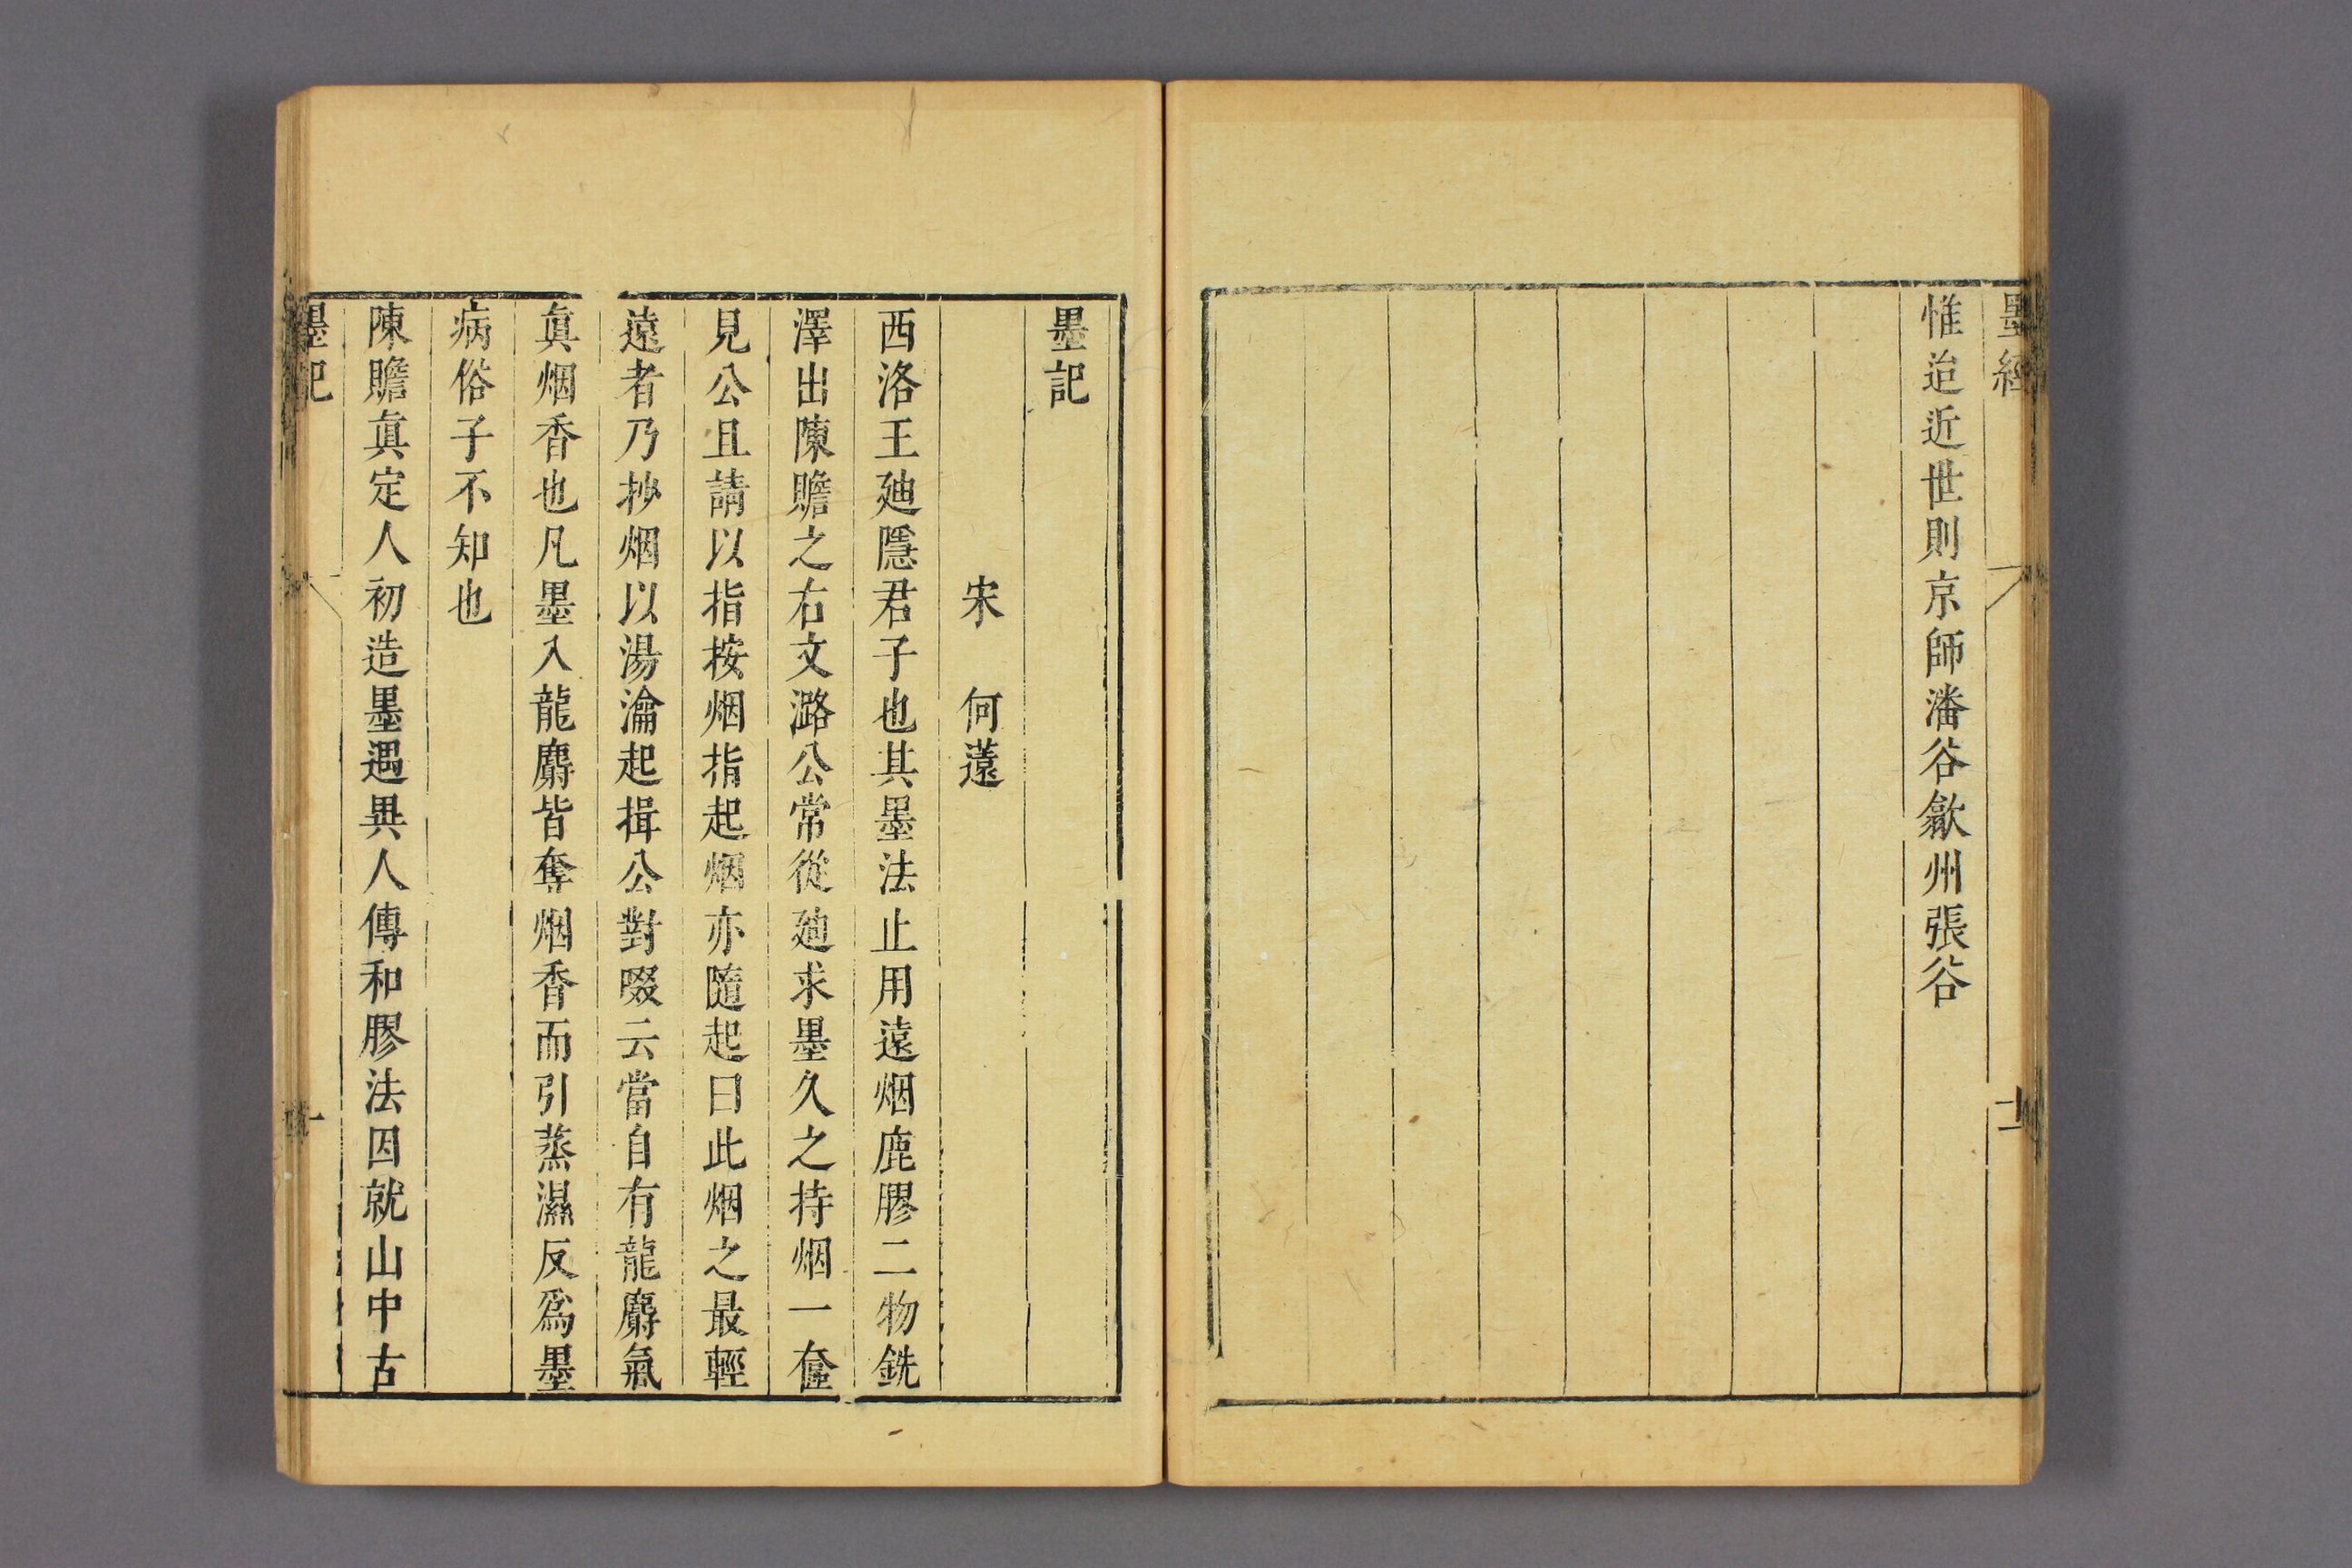 墨經
惟迨近世則京師潘谷歙州張谷
十二
墨記
宋　何薳
西洛王廸隱君子也其墨法止用遠烟鹿膠二物銑
澤出陳贍之右文潞公常從廸求墨久之持烟一奩
見公且請以指按烟指起烟亦隨起曰此烟之最輕
遠者乃抄烟以湯瀹起揖公對啜云當自有龍麝氣
眞烟香也凡墨入龍麝皆奪烟香而引蒸濕反爲墨
病俗子不知也
陳贍眞定人初造墨遇異人傳和膠法因就山中古
墨記
一